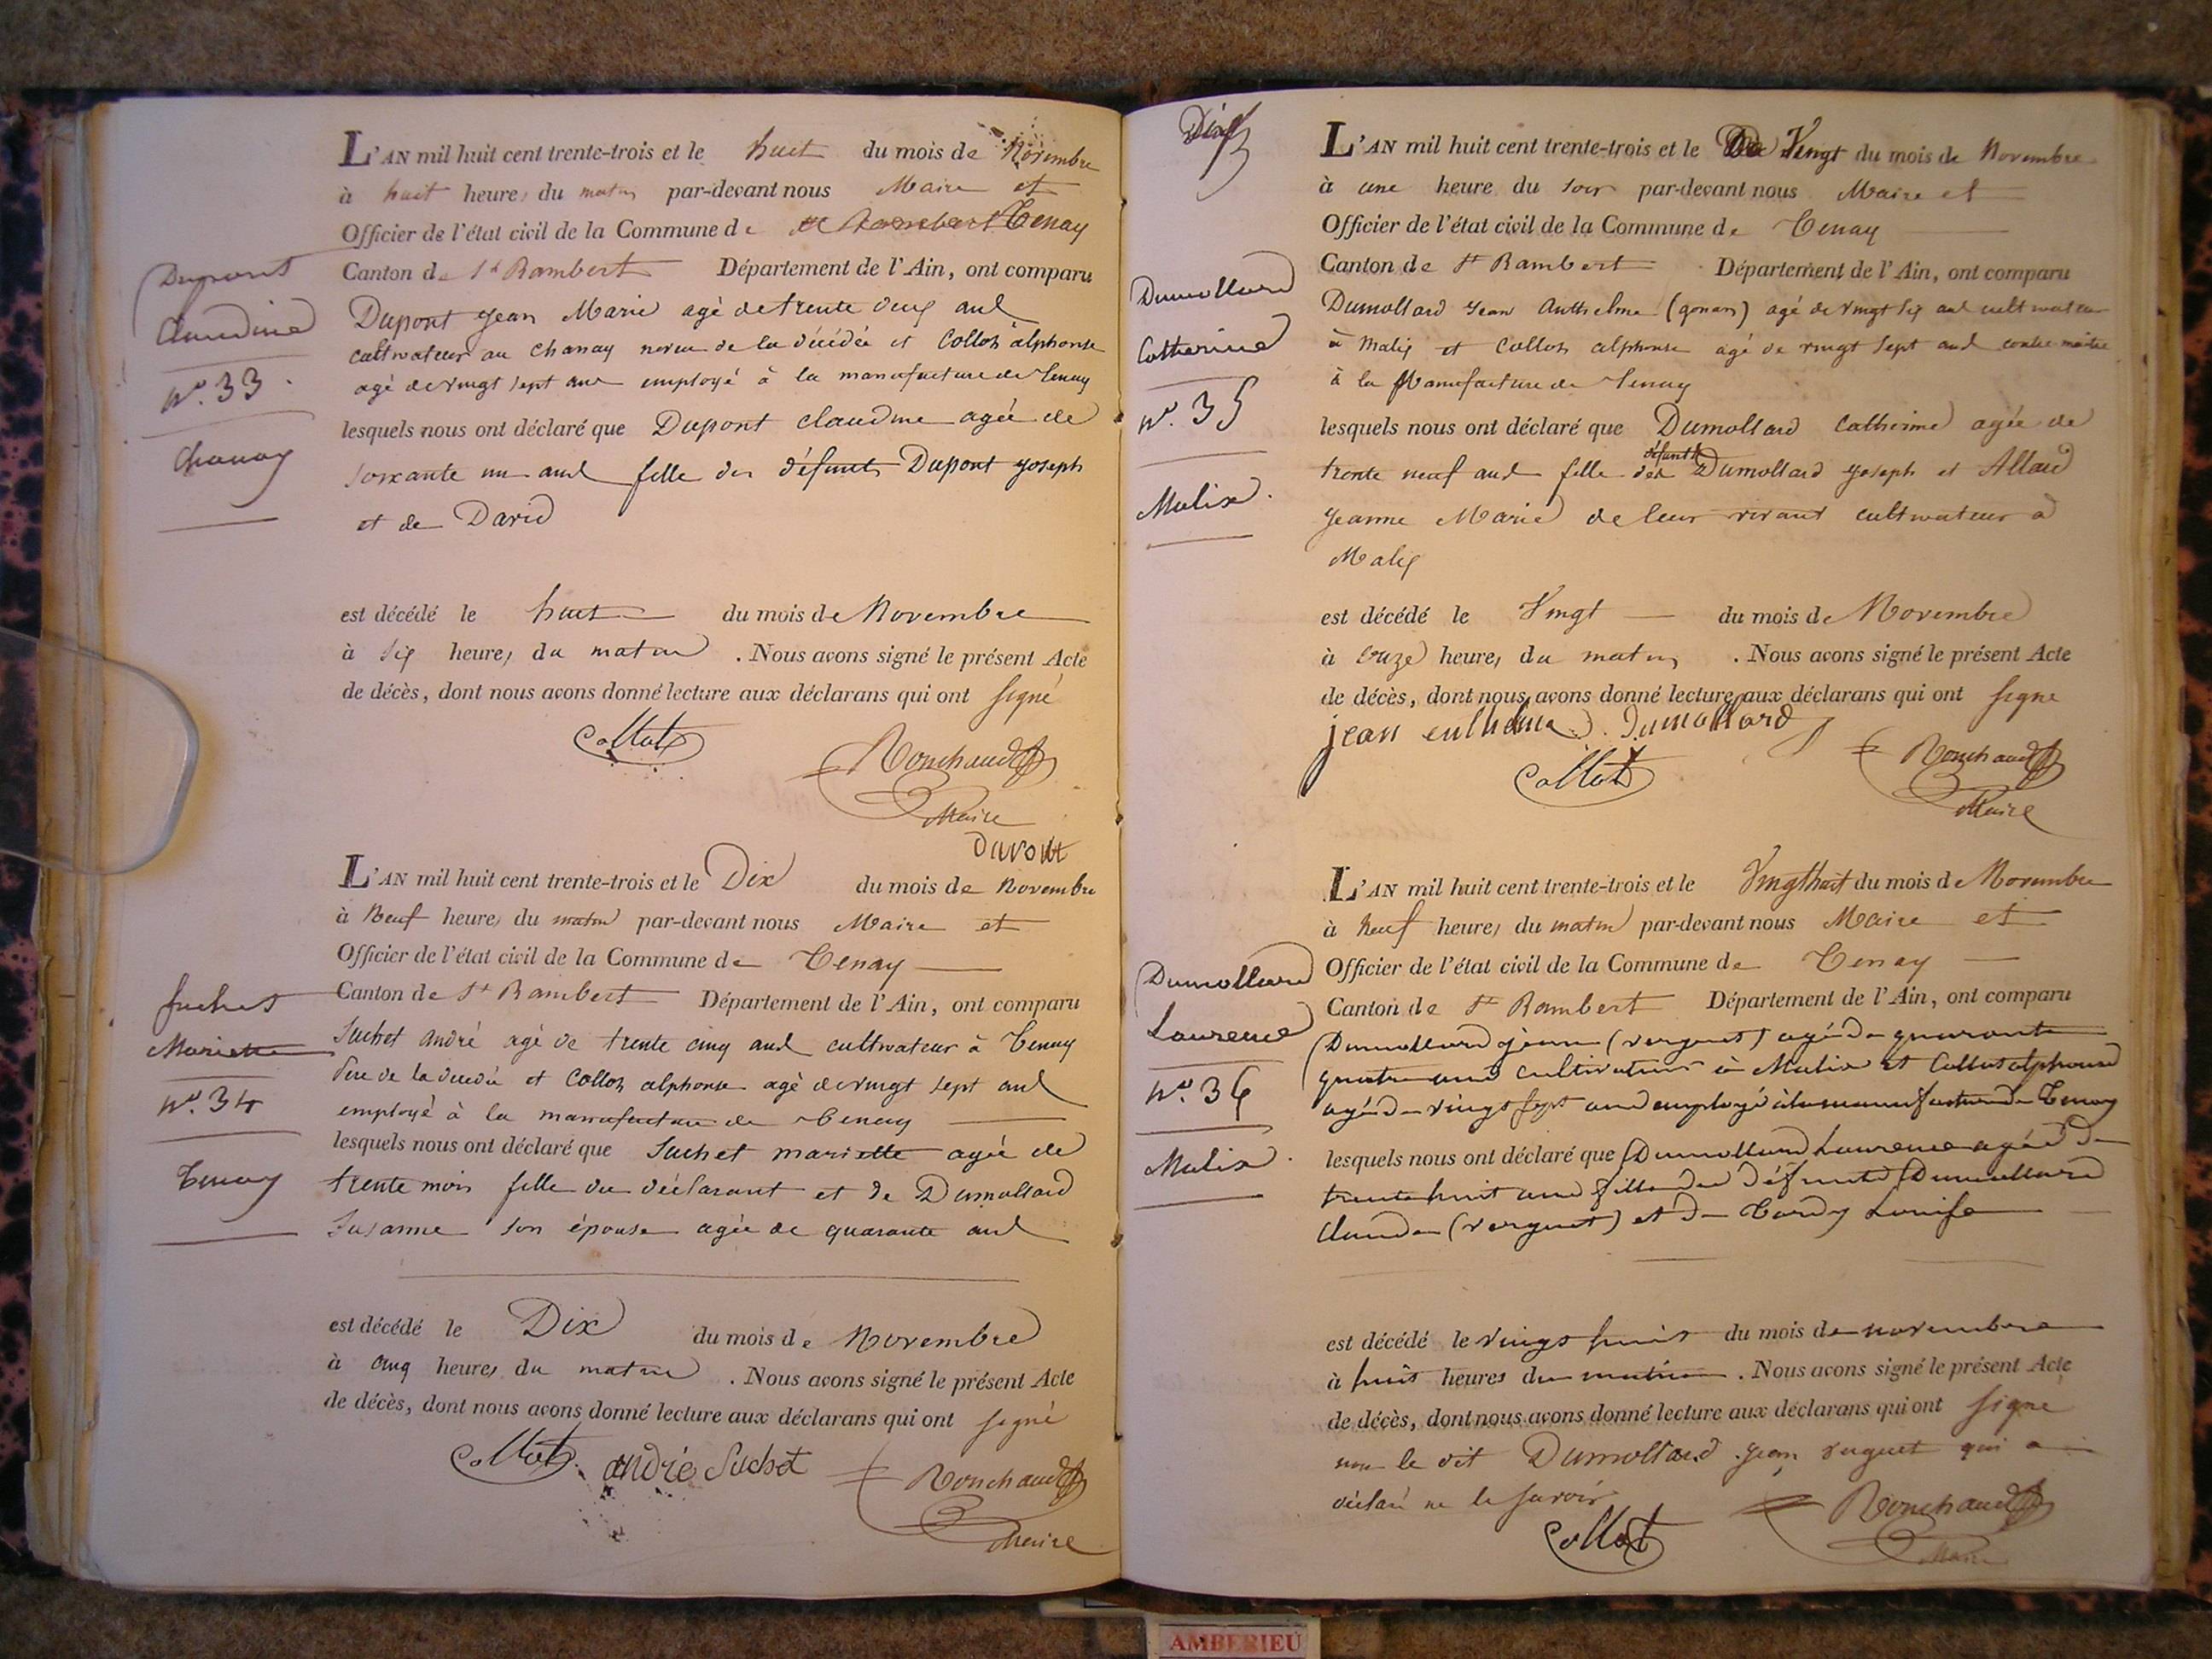 L'AN mil huit cent trente-trois et le huit du mois de Novembre
à huit heures du matin par-devant nous Maire et
Officier de l'état civil de la Commune de St Rambert Tenay
Canton de St Rambert Département de l'Ain, ont comparu
Dupont Claudine
N°. 33.
Chanay
Dupont jean Marie agé de trente deux ans
cultivateur au Chanay neveu de la décédée et Collot alphonse
agé de vingt sept ans employé à la manufacture de Tenay
lesquels nous ont déclaré que Dupont claudine agée de
soixante un ans fille des défunts Dupont joseph
et de David
est décédé le huit du mois de Novembre
à six heures du matin. Nous avons signé le présent Acte
de décès, dont nous avons donné lecture aux déclarans qui ont signé
Collot
Ronchaud
Maire
L'AN mil huit cent trente-trois et le Dix du mois de Novembre
à Neuf heures du matin par-devant nous Maire et
Officier de l'état civil de la Commune de Tenay
Canton de St Rambert Département de l'Ain, ont comparu
Suchet
Mariette
N°. 34
Tenay
Suchet andré agé de trente cinq ans cultivateur à Tenay
Père de la décédée et Collot alphonse agé de vingt sept ans
employé à la manufacture de Tenay
lesquels nous ont déclaré que Suchet mariette agée de
trente mois fille du déclarant et de Dumollard
Susanne son épouse agée de quarante ans
est décédé le Dix du mois de Novembre
à cinq heures du matin. Nous avons signé le présent Acte
de décès, dont nous avons donné lecture aux déclarans qui ont signé
Collot andré Suchet Ronchaud
Maire
L'AN mil huit cent trente-trois et le Vingt du mois de Novembre
à une heure du soir par-devant nous Maire et
Officier de l'état civil de la Commune de Tenay
Canton de St Rambert Département de l'Ain, ont comparu
Dumollard
Catherine
N°. 35
Malix.
Dumollard jean Anthelme (gonan) agé de vingt six ans cultivateur
à Malix et Collot alphonse agé de vingt sept ans contre-maitre
à la Manufacture de Tenay
lesquels nous ont déclaré que Dumollard Catherine agée de
trente neuf ans fille des défunts Dumollard joseph et Allard
jeanne Marie de leur vivant cultivateurs a
Malix
est décédé le Vingt du mois de Novembre
à onze heures du matin. Nous avons signé le présent Acte
de décès, dont nous avons donné lecture aux déclarans qui ont signé
jean enthelme Dumollard
Collot
Ronchaud
Maire
L'AN mil huit cent trente-trois et le Vingt huit du mois de Novembre
à Neuf heures du matin par-devant nous Maire et
Officier de l'état civil de la Commune de Tenay
Canton de St Rambert Département de l'Ain, ont comparu
Dumollard
Laurence
N°. 36
Malix.
Dumollard jean (verguet) agé de quarante
quatre ans cultivateur à Malix et Collot alphonse
agé de vingt sept ans employé à la manufacture de Tenay
lesquels nous ont déclaré que Dumollard Laurence agée de
trente huit ans fille des défunts Dumollard
Claude (verguet) et de Tardy Louise
est décédé le vingt huit du mois de novembre
à huit heures du matin. Nous avons signé le présent Acte
de décès, dont nous avons donné lecture aux déclarans qui ont signé
non le dit Dumollard jean verguet qui a
déclaré ne le savoir
Collot
Ronchaud
Maire
AMBERIEU